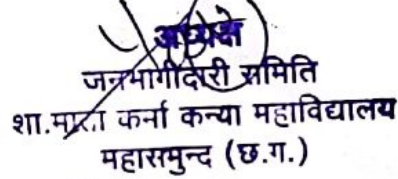 अध्यक्ष
जनभागीदारी समिति
शा.माता कर्मा कन्या महाविद्यालय
महासमुन्द (छ.ग.)